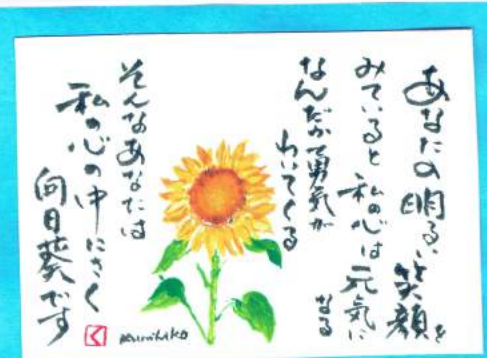 あなたの明るい笑顔を
みていると私の心は元気になる
なんだかて勇気が
わいてくる
そんなあなたは
私の心の中にさく
向日葵です
く
Kunihiko